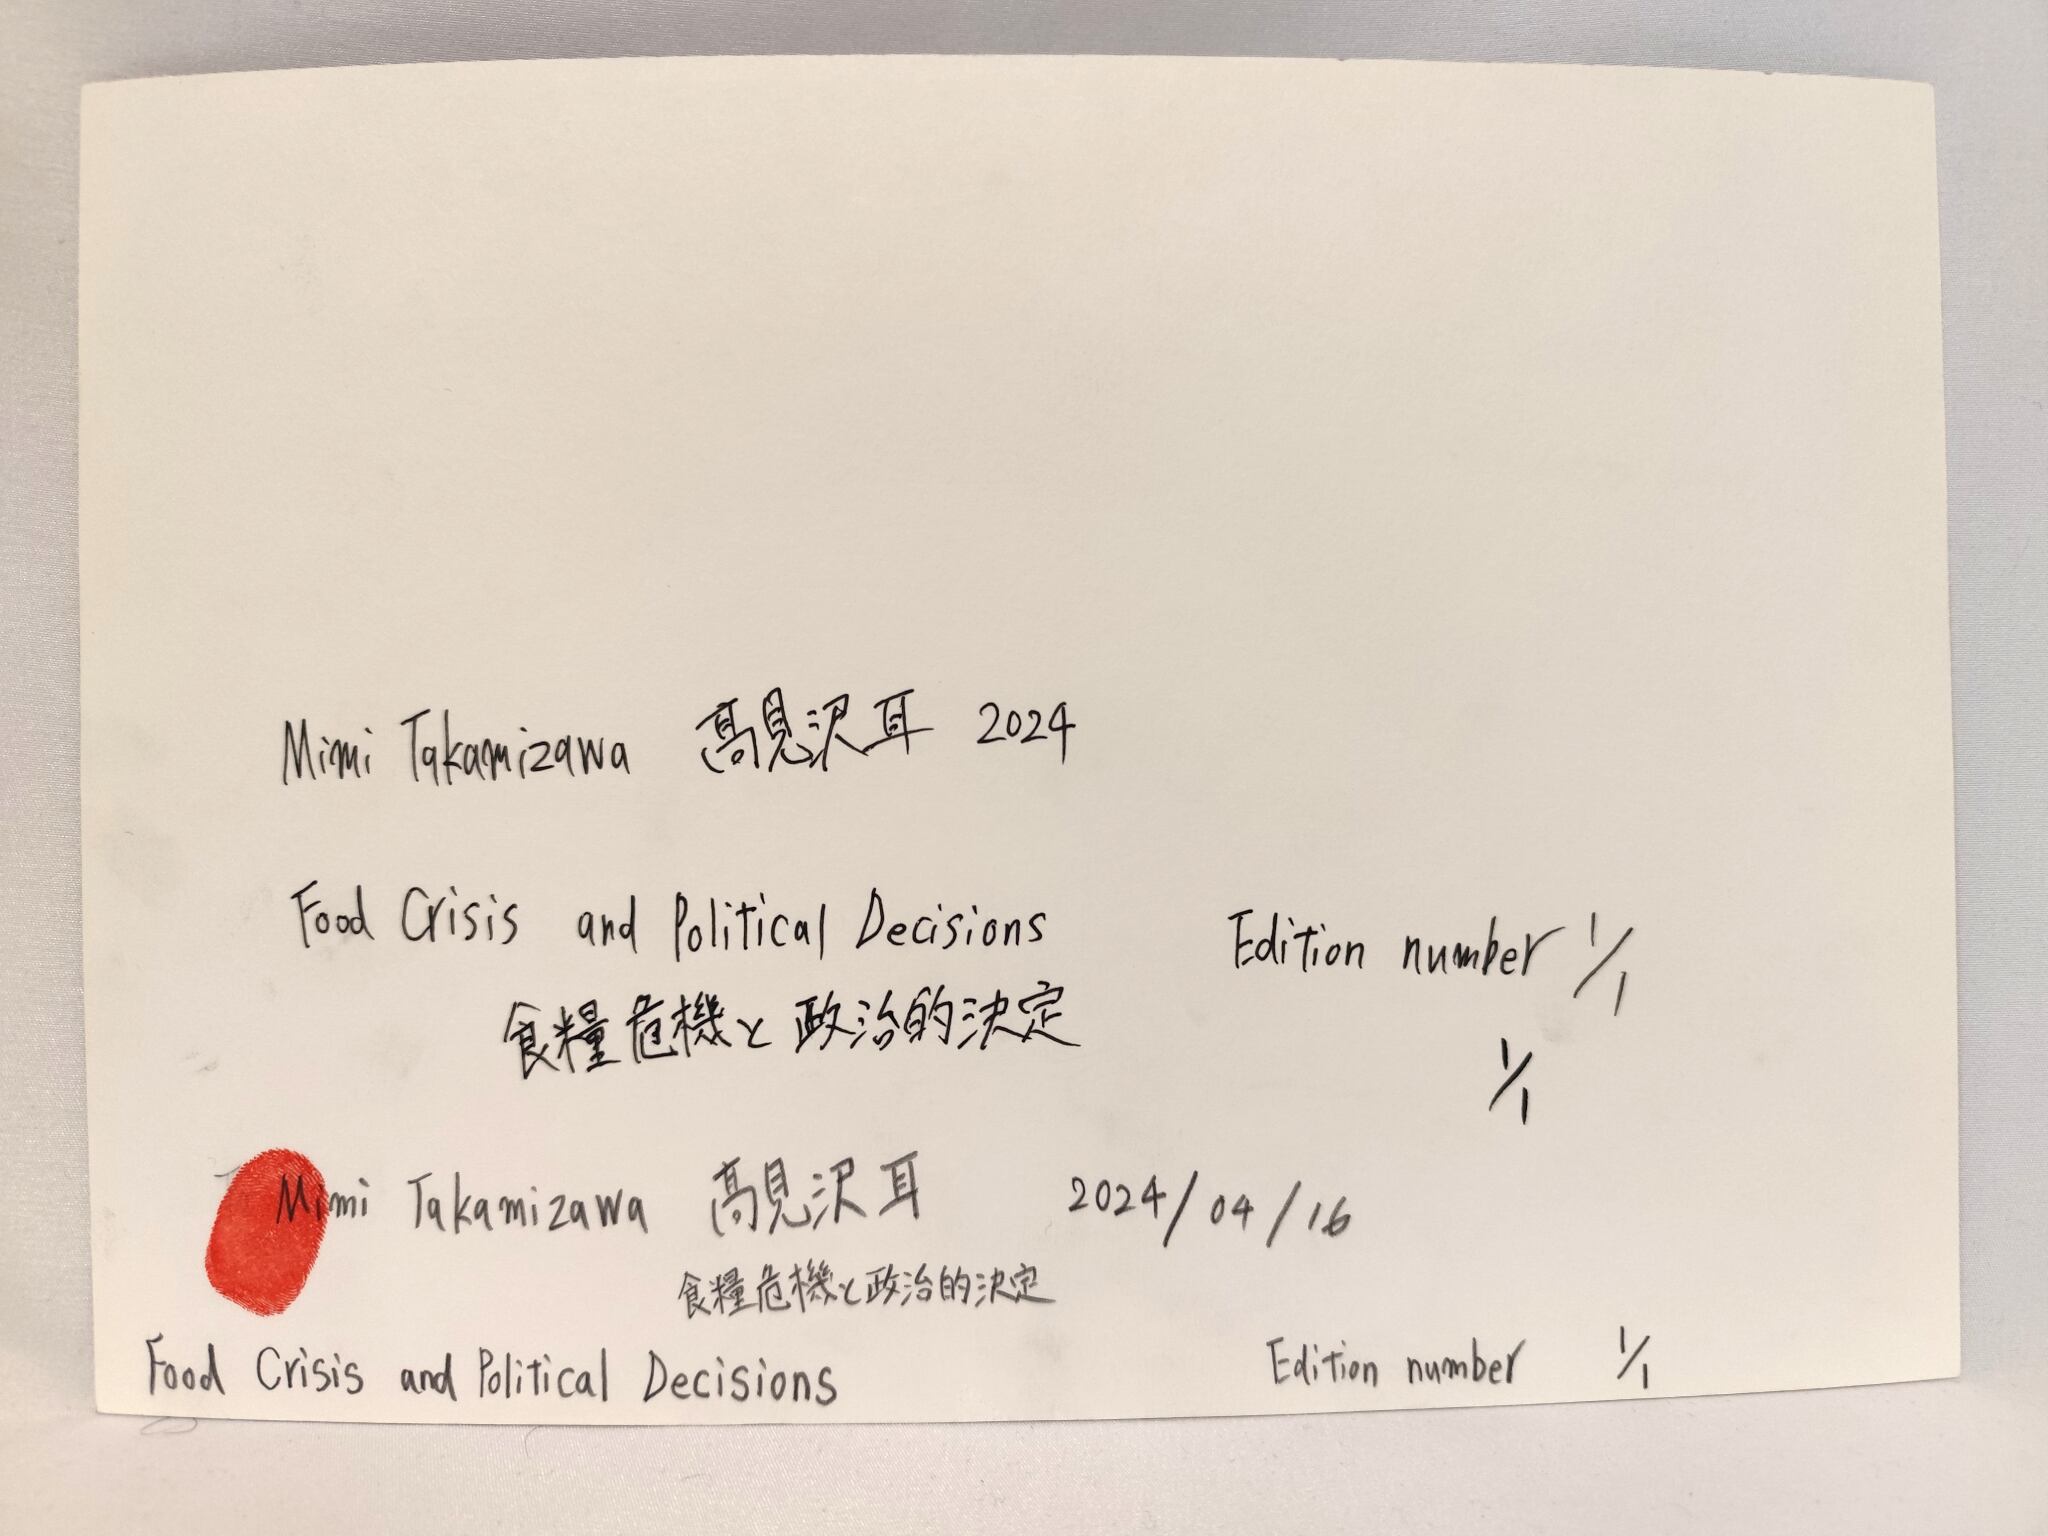 Mimi Takamizawa 高見沢耳 2024
Food Crisis and Political Decisions Edition number 1/1
食糧危機と政治的決定
1/1
Mimi Takamizawa 高見沢耳 2024/04/16
食糧危機と政治的決定
Food Crisis and Political Decisions Edition number 1/1